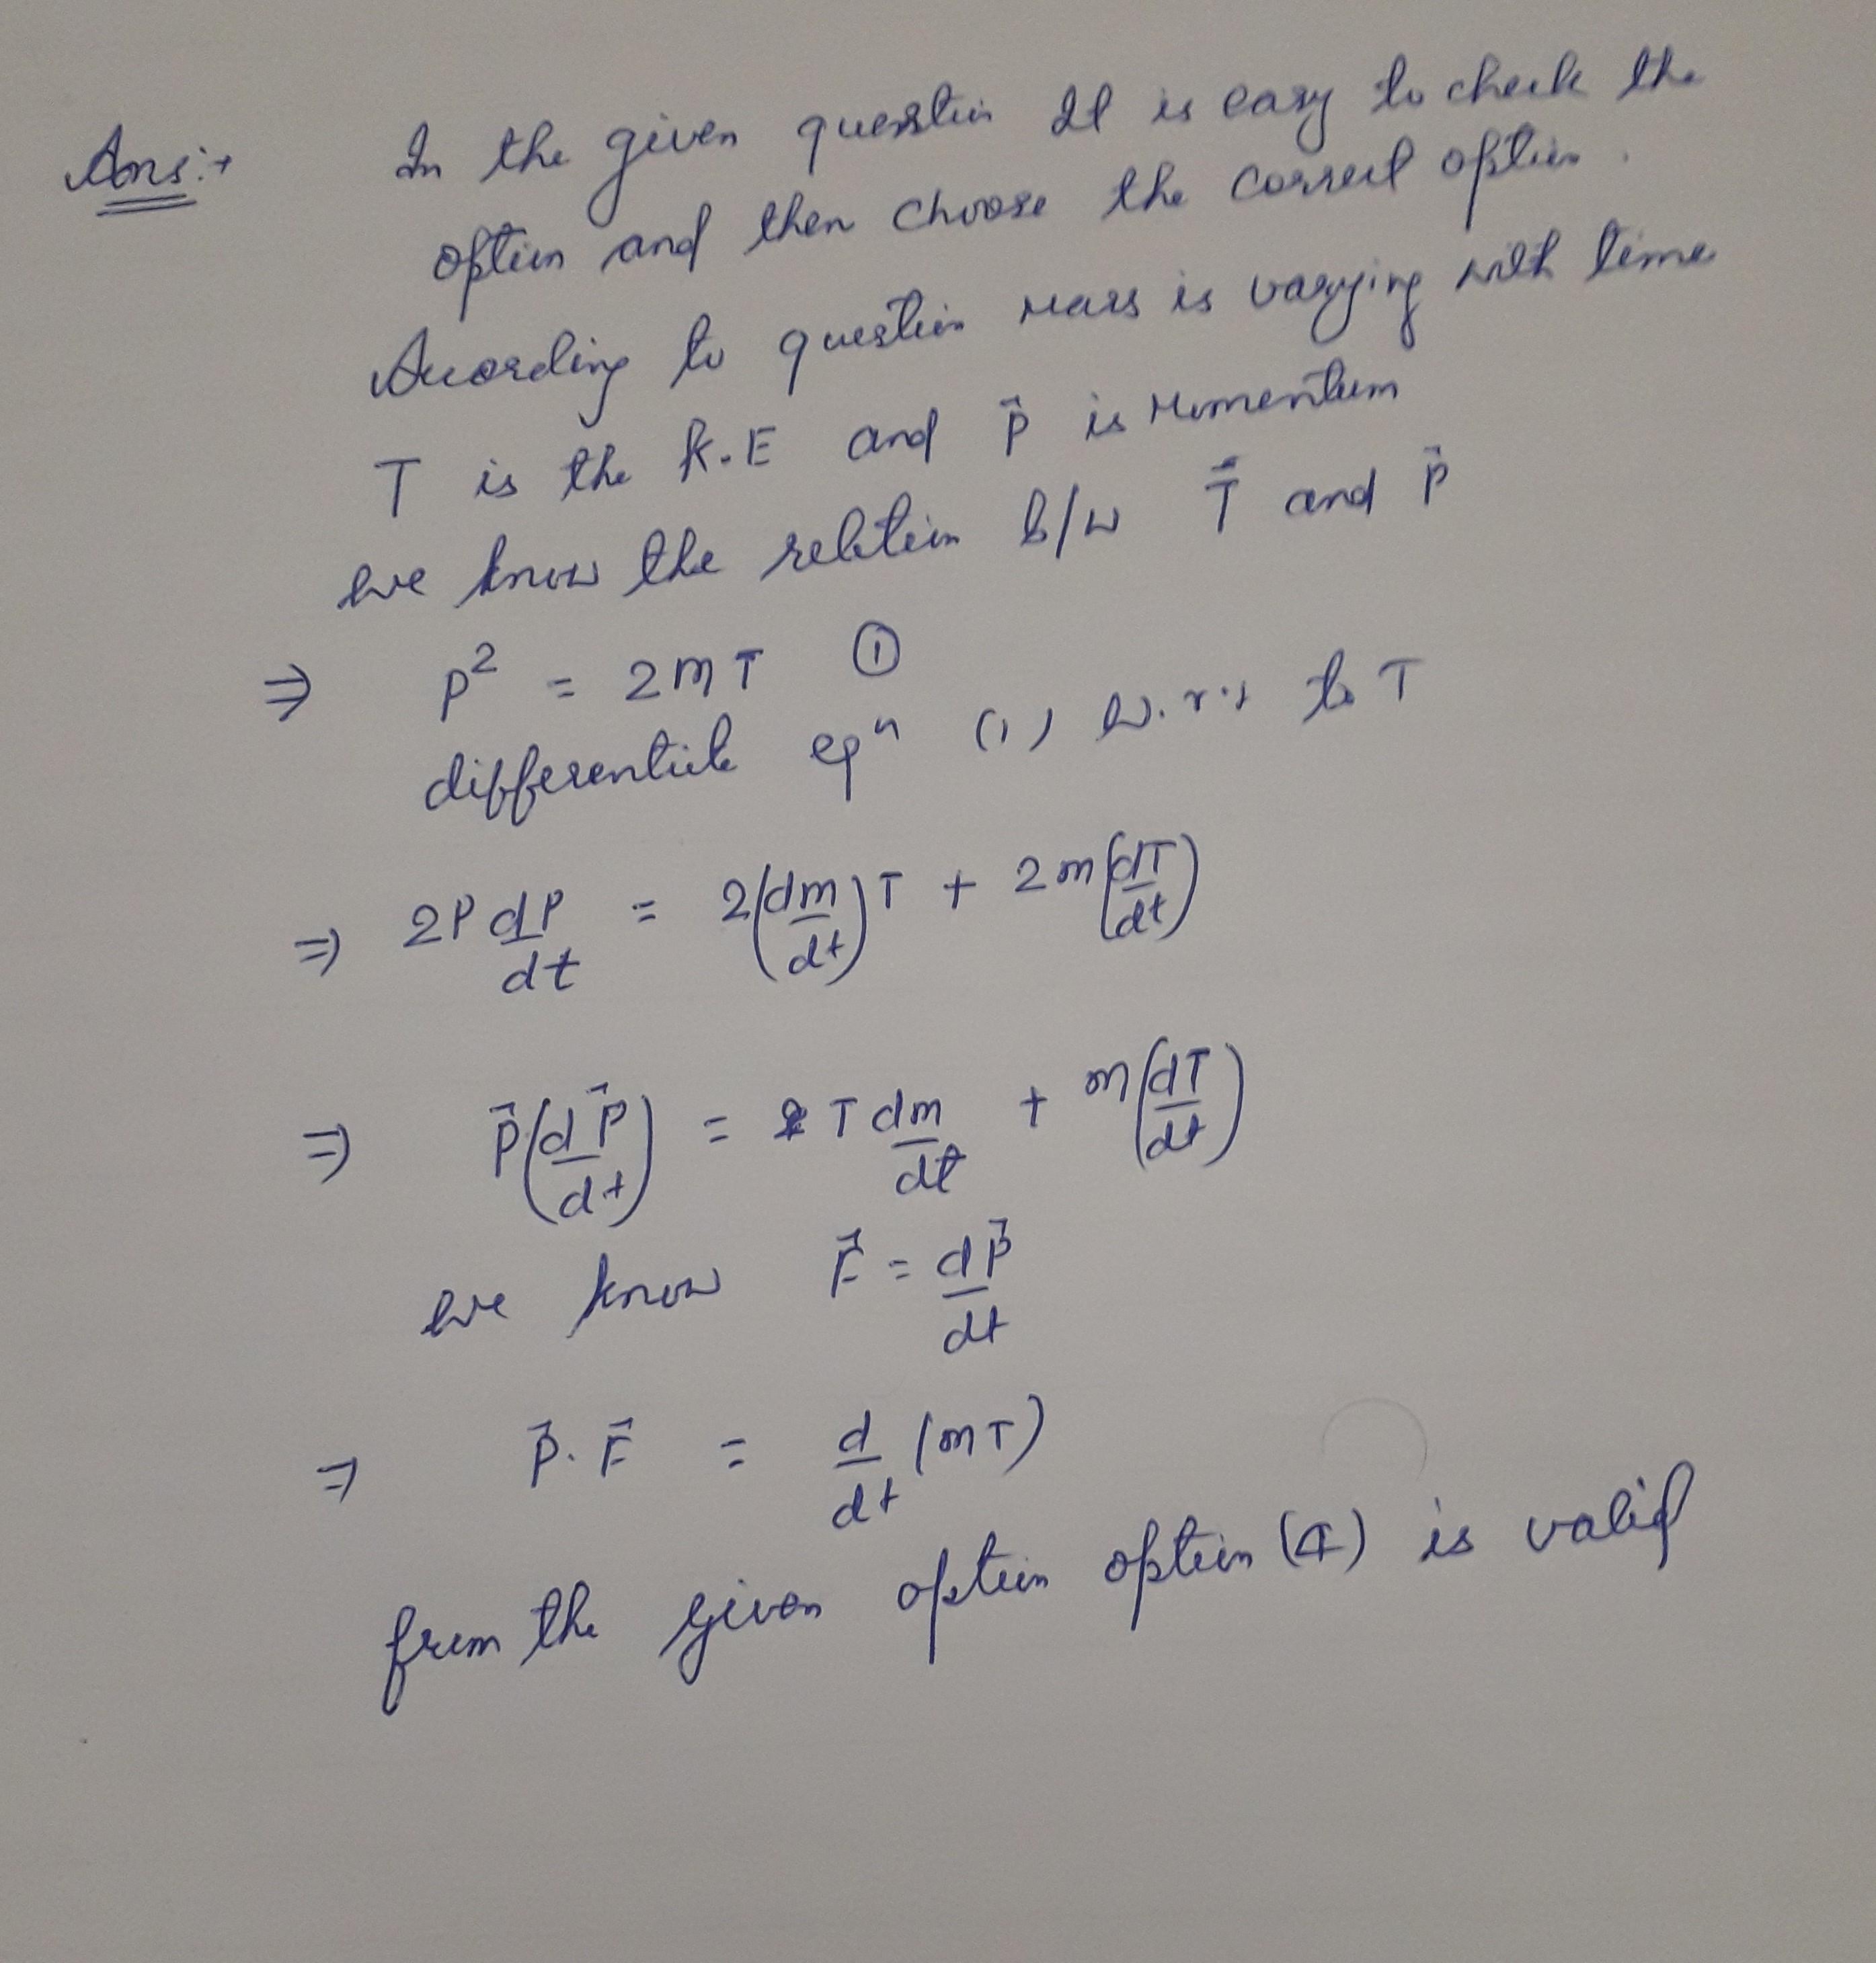 Ans:→ In the given question It is easy to check the
option and then choose the correct option.
According to question Mass is varying with time
T is the K.E and p⃗ is Momentum
we know the relation b/w T⃗ and p⃗
⇒ p² = 2mT ①
differentiate eqⁿ (1) w.r.t to T
⇒ 2P dP/dt = 2(dm/dt)T + 2m(dT/dt)
⇒ P⃗(dP⃗/dt) = T dm/dt + m(dT/dt)
we know F⃗ = dP⃗/dt
⇒ P⃗.F⃗ = d/dt (mT)
from the given option option (4) is valid